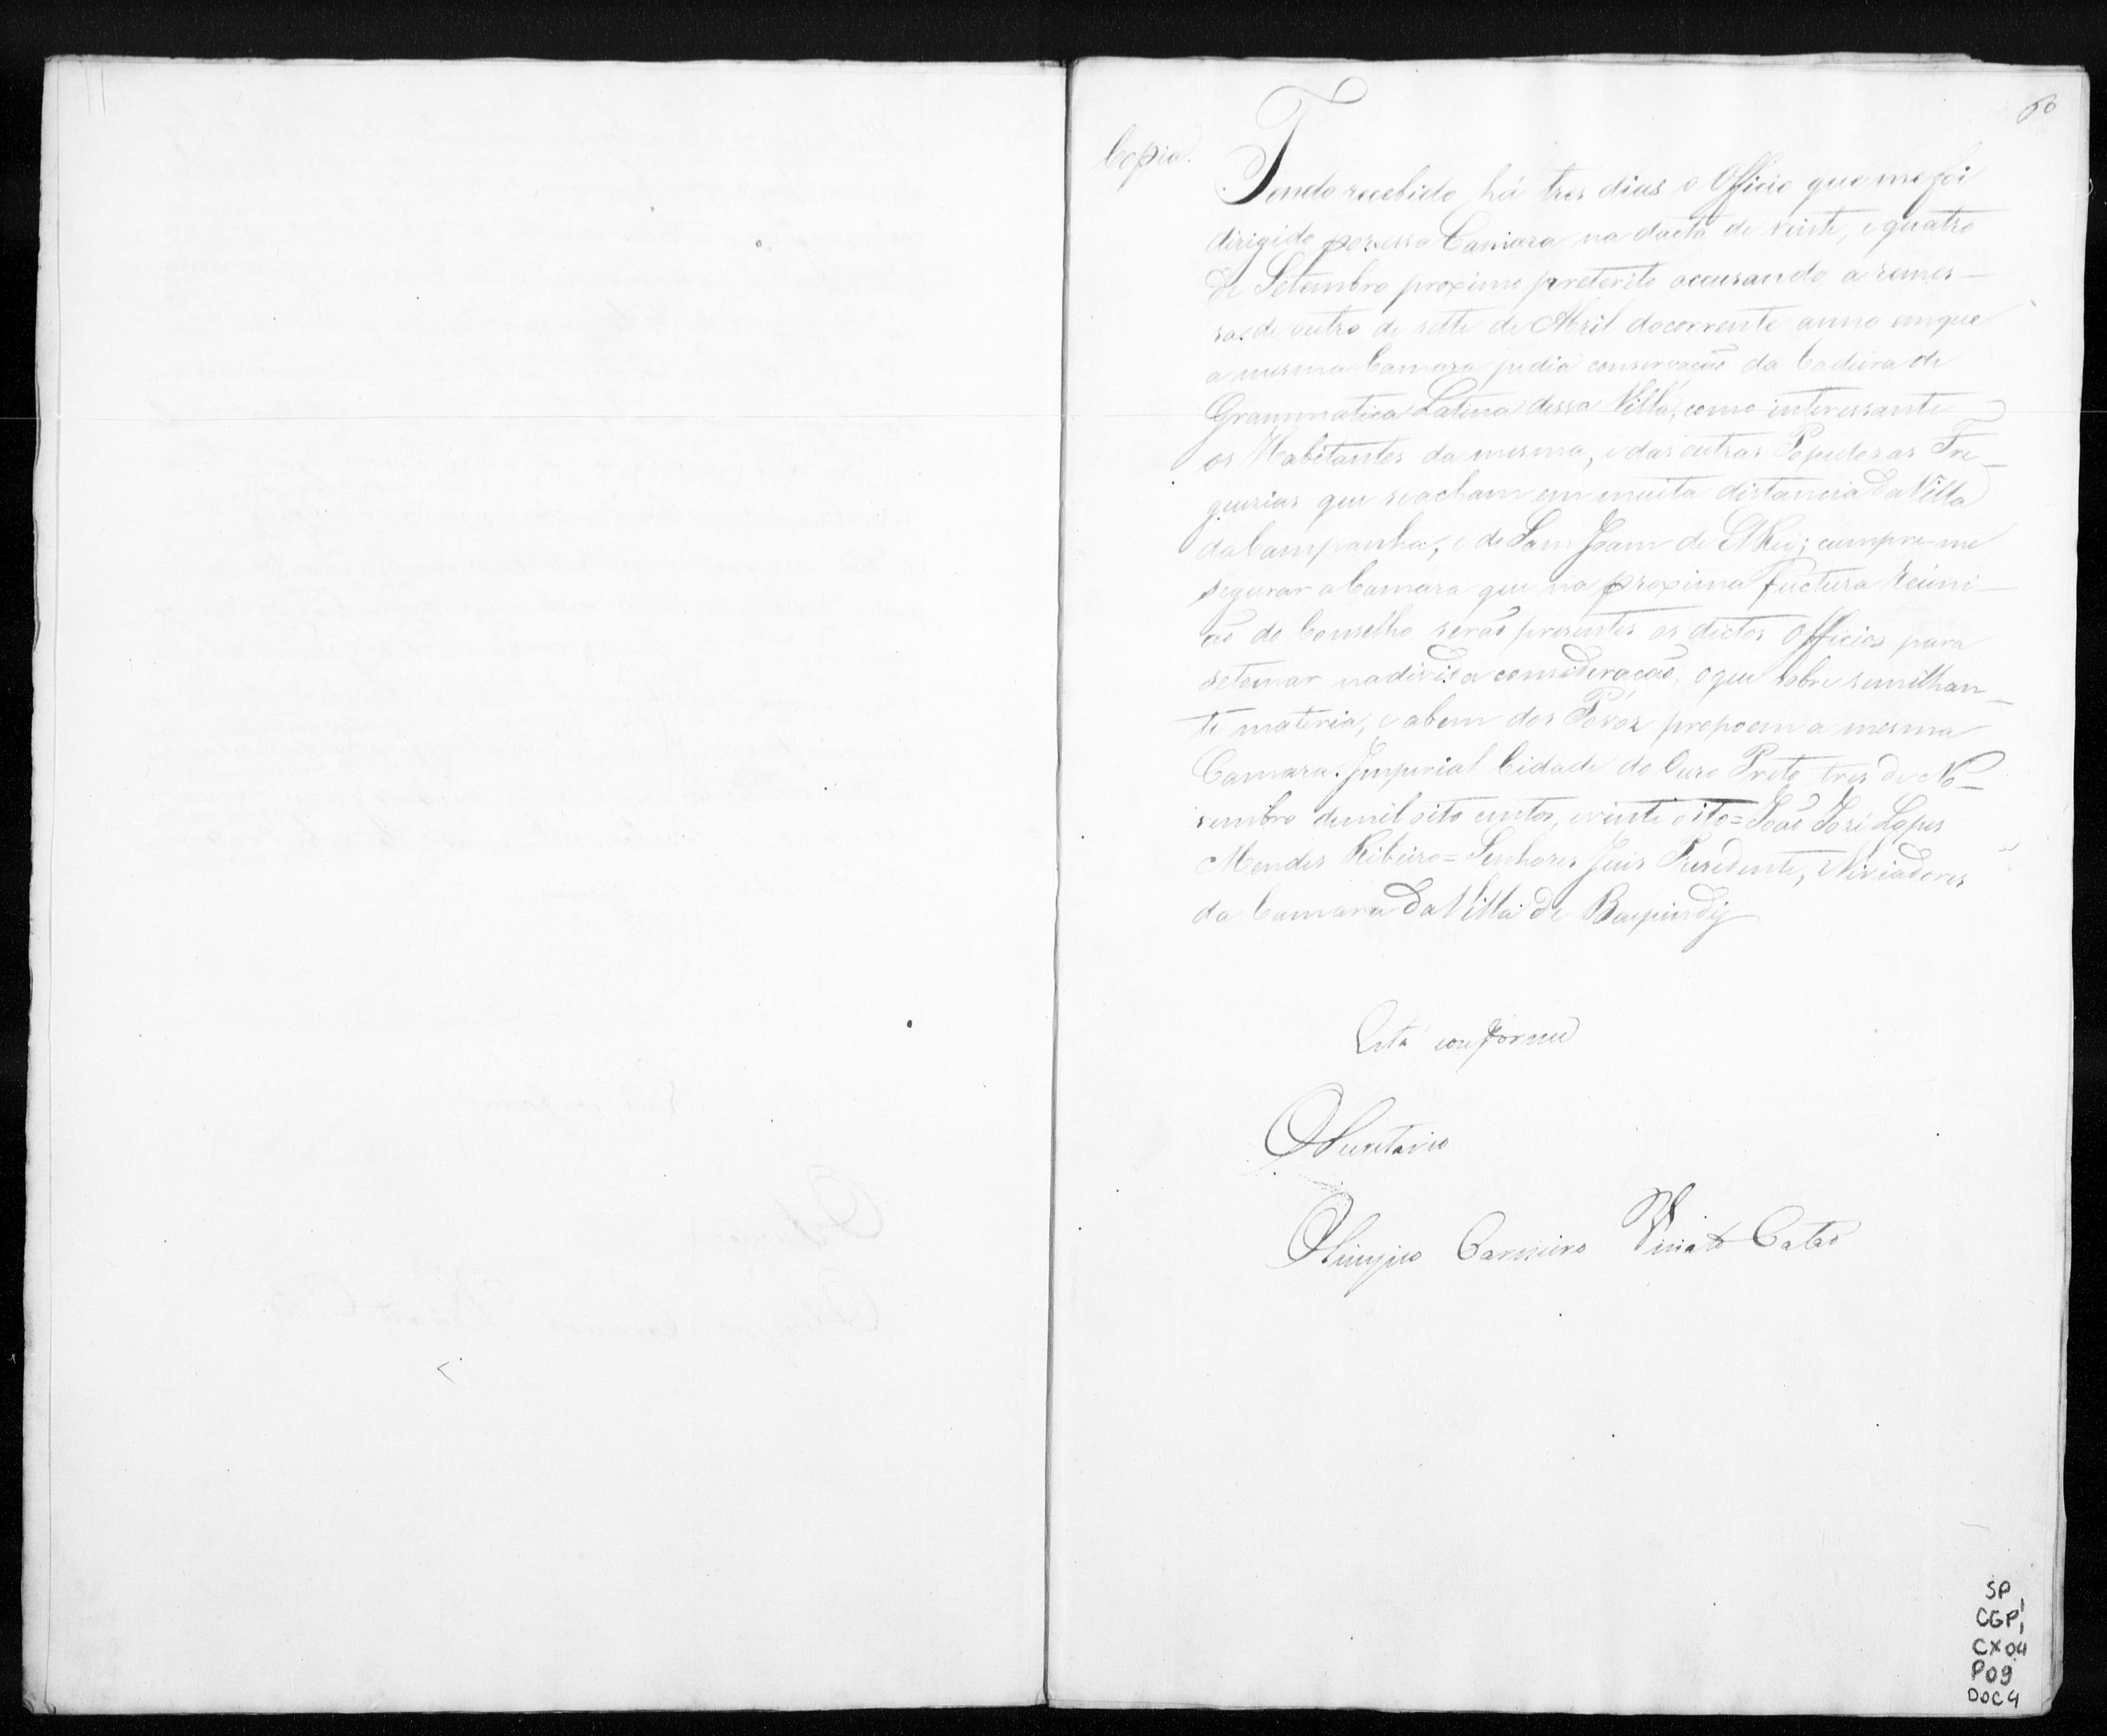 60
Copia.
Tendo recebido há tres dias o Officio que me foi
dirigido por essa Camara na dacta de vinte, e quatro
de Setembro proximo preterito accusando a remes–
sa de outro de sette de Abril do corrente anno em que
a mesma Camara pedia conservação da Cadeira de
Grammatica Latina dessa Villa, como interessante
os Habitantes da mesma, e das outras Populosas Fre–
guezias que se acham em muita distancia da Villa
da Campanha, e de Sam Joam de ElRei; cumpre-me
segurar a Camara que na proxima fuctura Reuni–
ão do Conselho serão presentes os dictos Officios para
se tomar na divida consideração, o que sobre similhan–
te materia, e a bem dos Povos propoem a mesma
Camara. Imperial Cidade do Ouro Preto tres de No–
vembro de mil oito centos, e vinte oito = João José Lopes
Mendes Ribeiro = Senhores Juis Presidente, e Veriadores
da Camara da Villa de Baependÿ
Está conforme
O Secretario
Olimpio Carneiro Viriato Catão
SP
CGP1
CX04
P09
DOC4